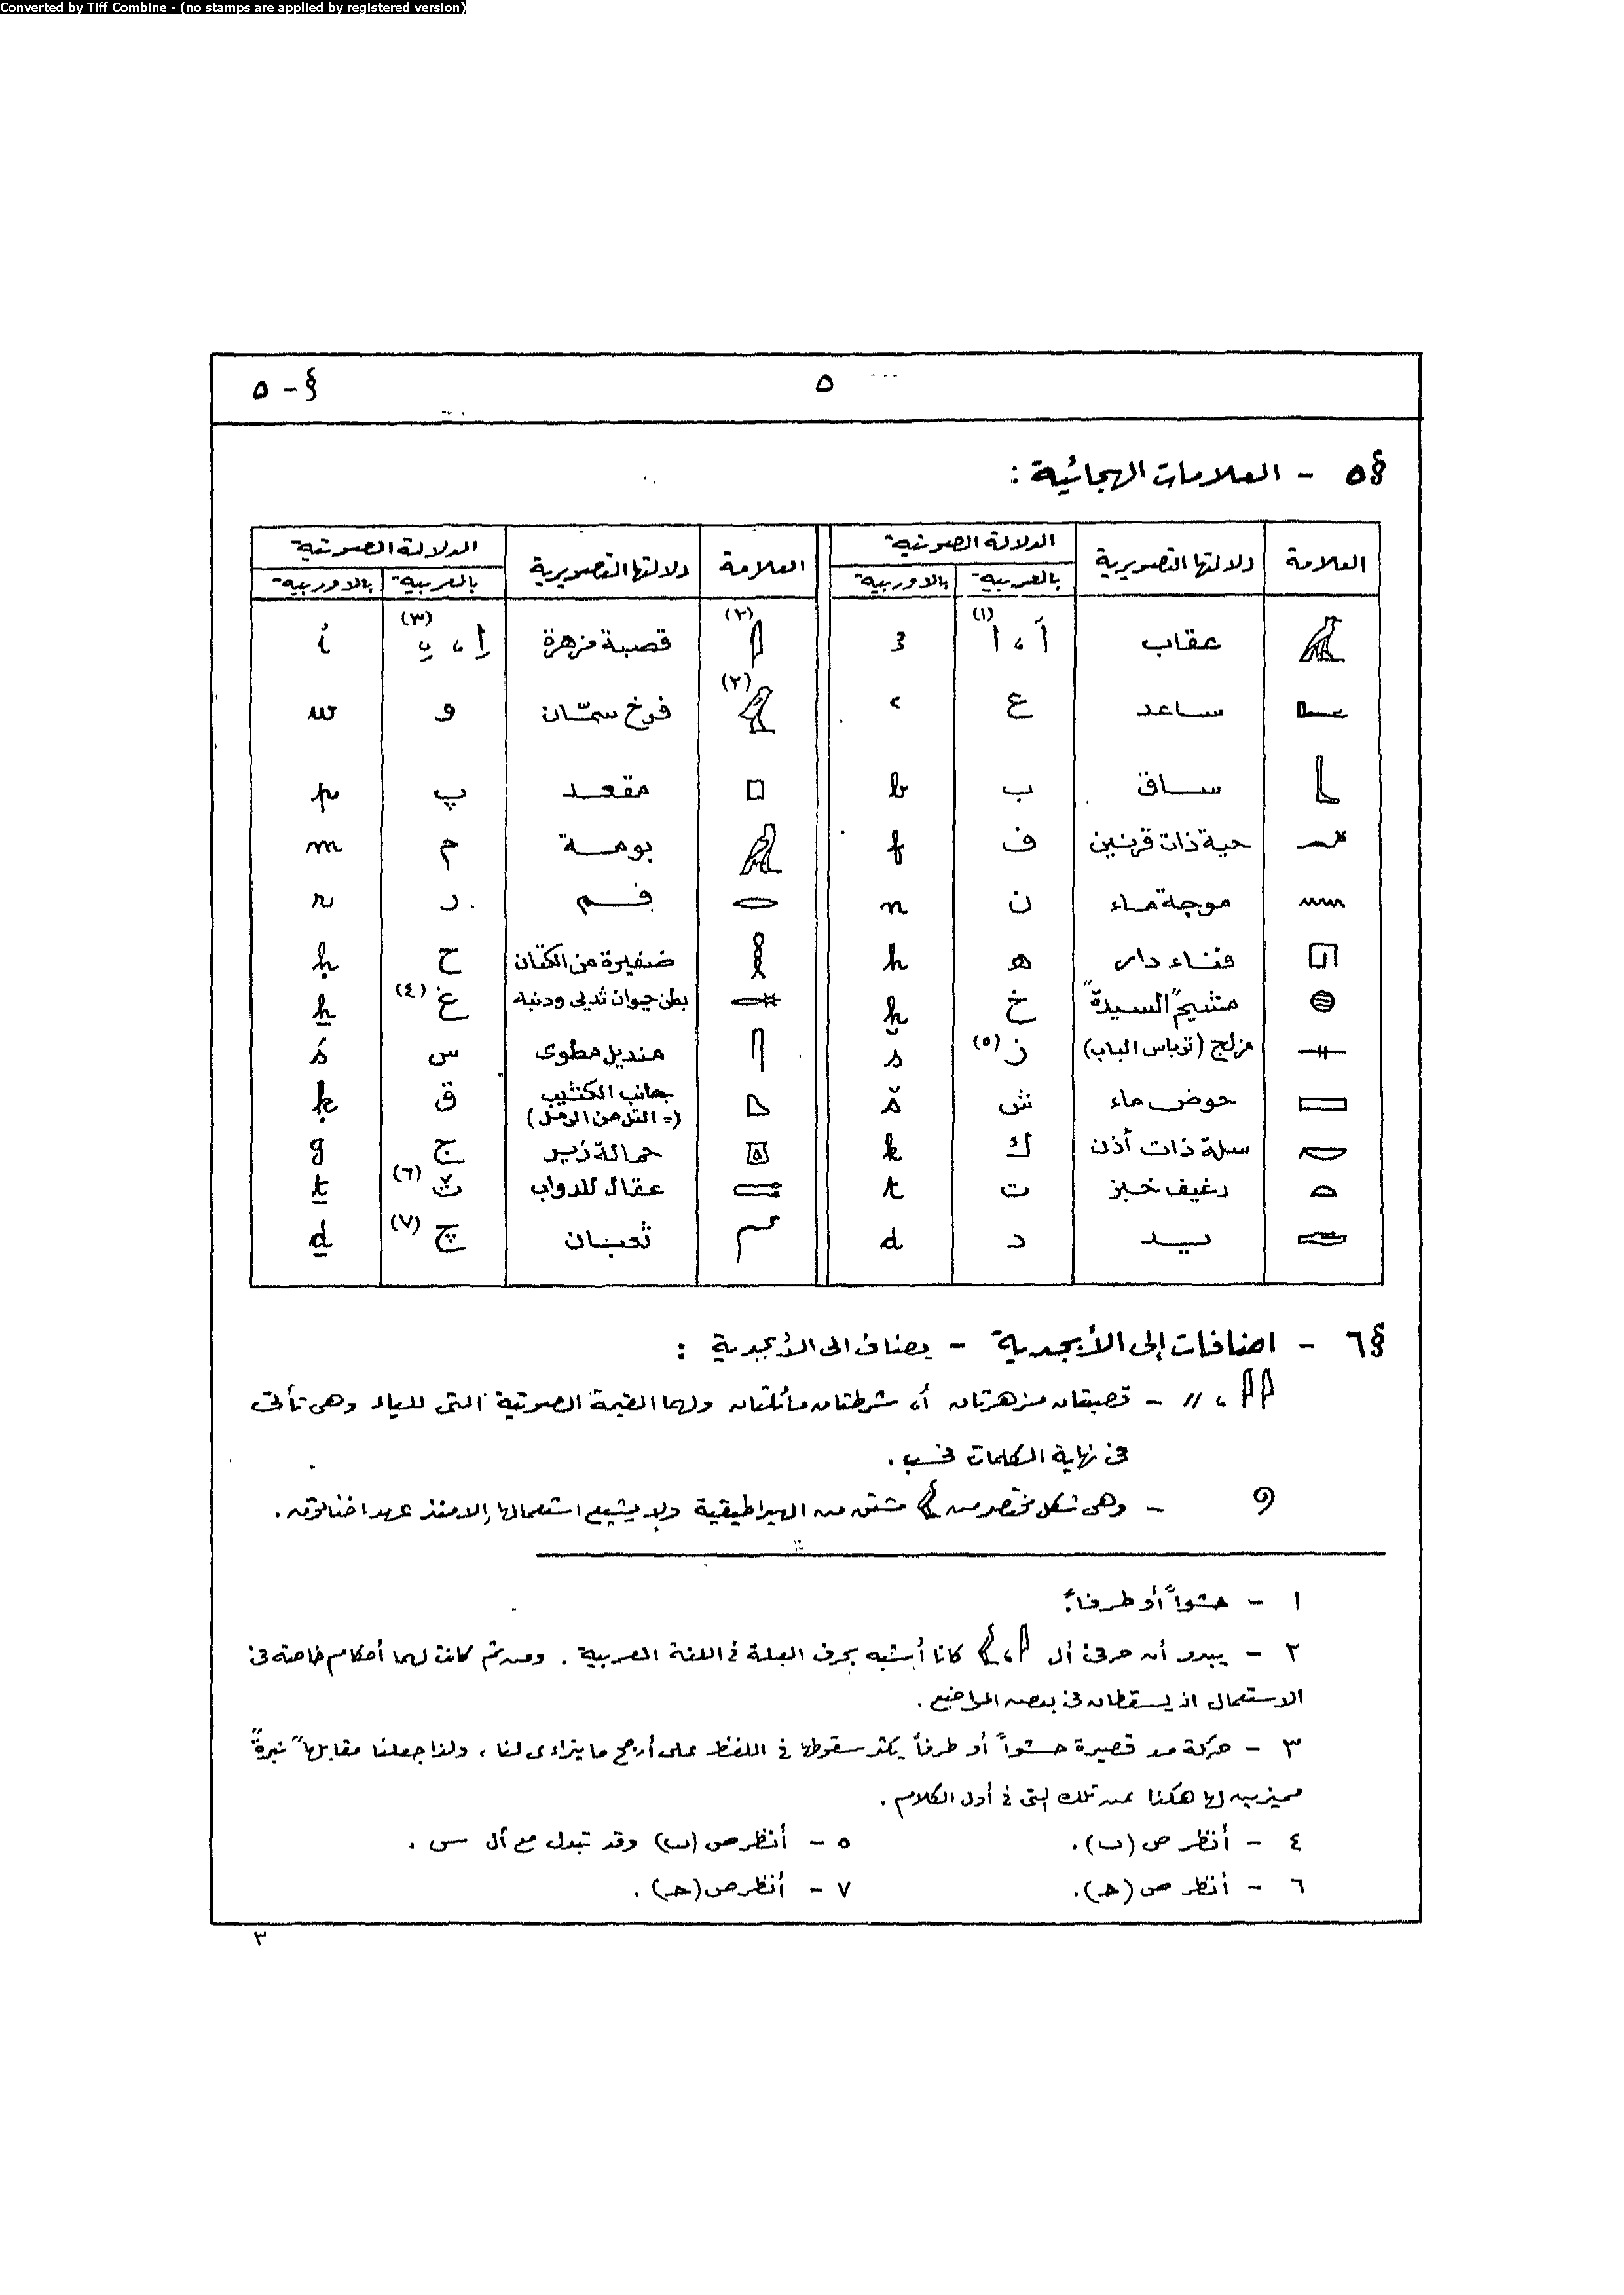 Converted by Tiff Combine - (no stamps are applied by registered version)
§ - ٥
٥
§٥ - العلامات الهجائية :
العلامة | دلالتها التصويرية | الدلالة الصوتية | العلامة | دلالتها التصويرية | الدلالة الصوتية
بالعربية | بالاوربية | بالعربية | بالاوربية
عقاب | آ ، ا (١) | 3 | (٢) | قصبة مزهرة | إ ، ي (٣) | i
ساعد | ع | c | (٢) | فرخ سمّان | و | w
ساق | ب | b | مقعد | پ | p
حية ذات قرنين | ف | f | بومة | م | m
موجة ماء | ن | n | فم | ر | r
فناء دار | ه | h | ضفيرة من الكتان | ح | ḥ
مشيم "السيدة" | خ | ḫ | بطن حيوان ثديي وذنبه | غ (٤) | ẖ
مزلج (ترباس الباب) | ز (٥) | s | منديل مطوى | س | ś
حوض ماء | ش | š | جانب الكثيب
(= التل من الرمل) | ق | ḳ
سلة ذات أذن | ك | k | حمالة زير | ج | g
رغيف خبز | ت | t | عقال للدواب | ث (٦) | ṯ
يد | د | d | ثعبان | چ (٧) | ḏ
§٦ - اضافات إلى الأبجدية - يضاف الى الأبجدية :
، \\ - قصبتان مزهرتان أو شرطتان مائلتان ولهما القيمة الصوتية التى للياء وهى تأتى
فى نهاية الكلمات فحسب .
- وهى شكل مختصر من مشتق من الهيراطيقية ولا يشيع استعمالها إلا منذ عهد اخناتون .
١ - حشواً أو طرفاً .
٢ - يبدو أن حرفى أل ، كانا أشبه بحرف العلة فى اللغة العربية . ومن ثم كانت لهما أحكام خاصة فى
الاستعمال اذ يسقطان فى بعض المواضع .
٣ - حركة مد قصيرة حشواً أو طرفاً يكثر سقوطها فى اللفظ على أرجح ما يتراءى لنا ، ولذا جعلنا مقابلها "نبرة"
مميزين لها هكذا عن تلك التى فى أول الكلام .
٤ - أنظر ص (ب) .
٥ - أنظر ص (ب) وقد تبدل مع أل س .
٦ - أنظر ص (ﺣ) .
٧ - أنظر ص (ﺣ) .
٣